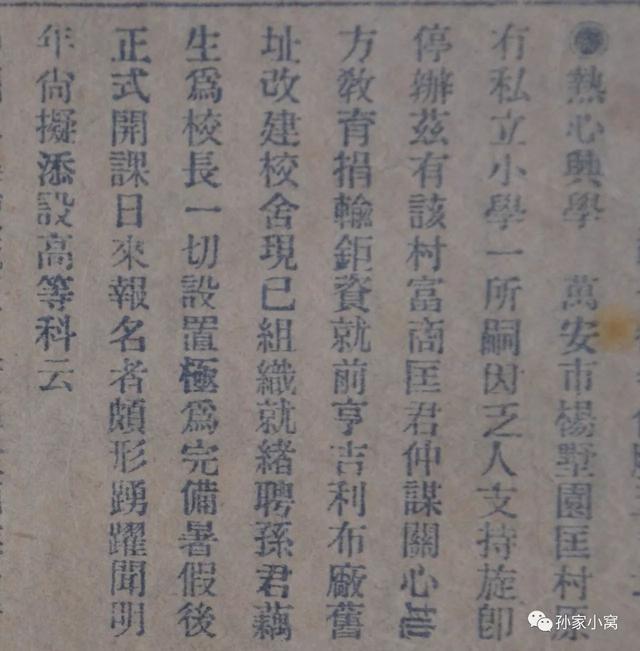 熱心興學　萬安市楊墅園匡村原
有私立小學一所嗣因乏人支持旋卽
停辦茲有該村富商匡君仲謀關心地
方敎育捐輸鉅資就前亨吉利布廠舊
址改建校舍現已組織就緒聘孫君藕
生爲校長一切設置極爲完備暑假後
正式開課日來報名者頗形踴躍聞明
年尙擬添設高等科云
孙家小窝